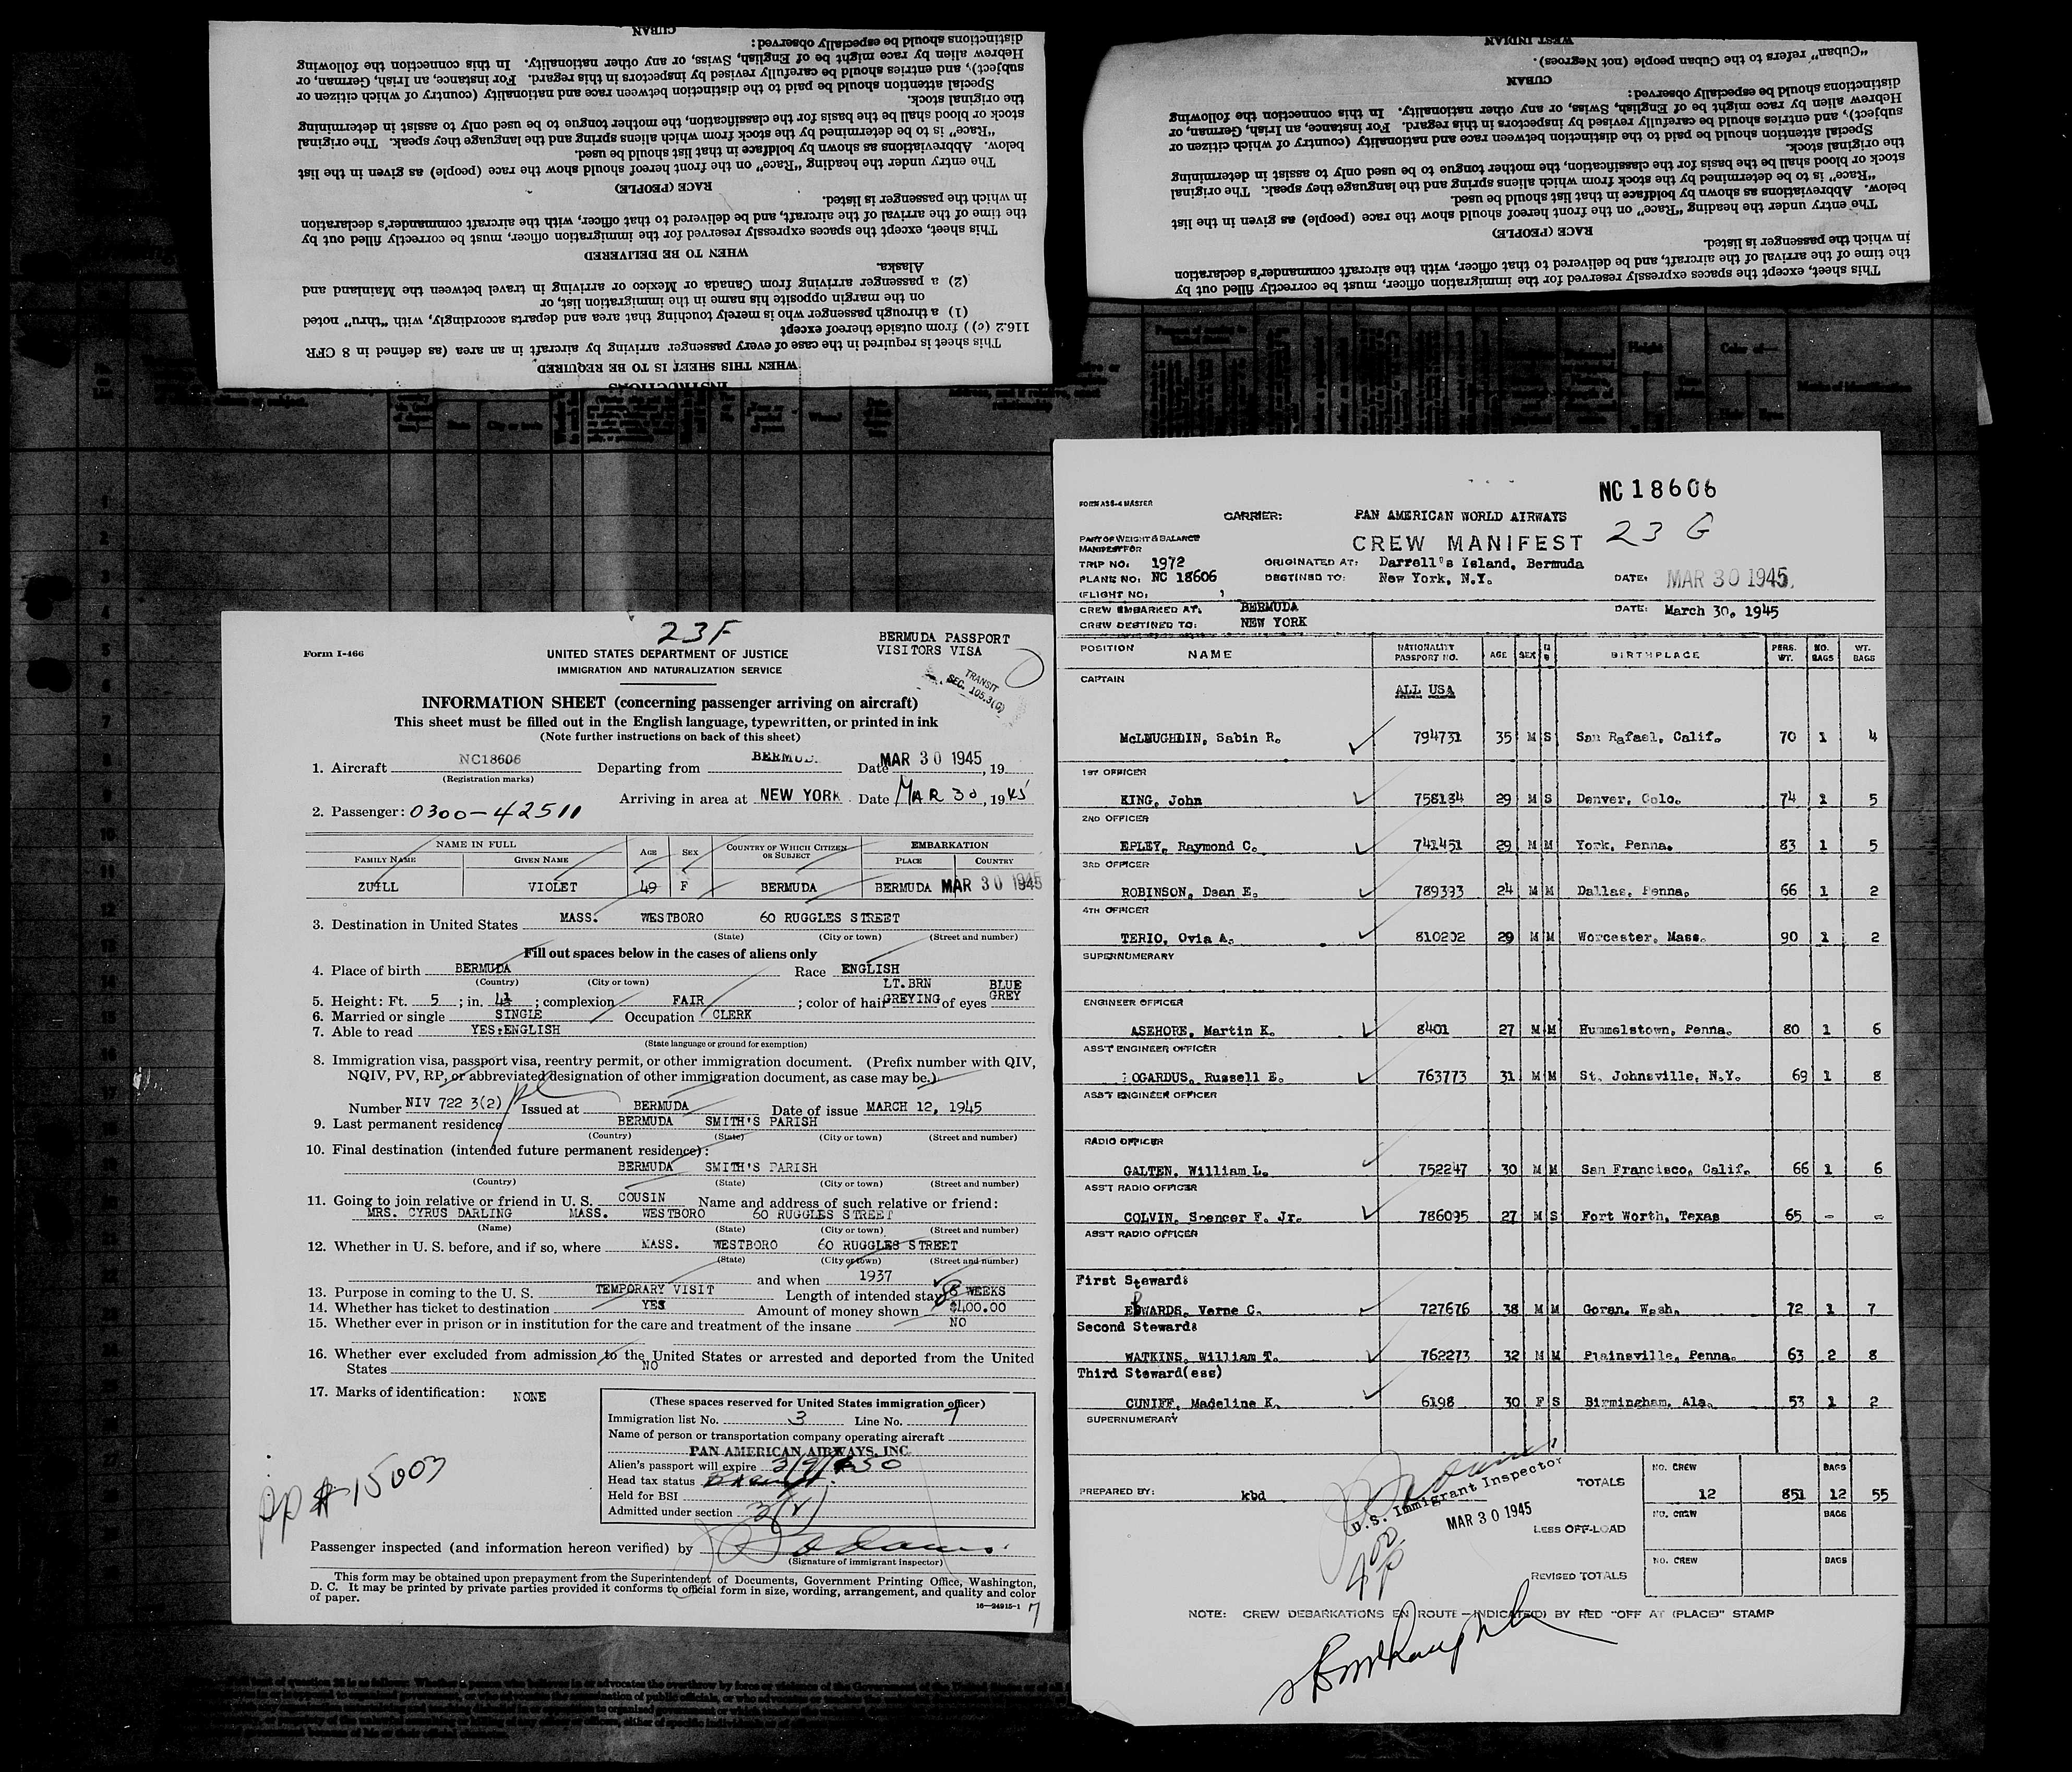 CUBAN
distinctions should be especially observed:
Hebrew alien by race might be of English, Swiss, or any other nationality. In this connection the following
subject), and entries should be carefully revised by inspectors in this regard. For instance, an Irish, German, or
Special attention should be paid to the distinction between race and nationality (country of which citizen or
the original stock.
stock or blood shall be the basis for the classification, the mother tongue to be used only to assist in determining
"Race" is to be determined by the stock from which aliens spring and the language they speak. The original
below. Abbreviations as shown by boldface in that list should be used.
The entry under the heading "Race" on the front hereof should show the race (people) as given in the list
RACE (PEOPLE)
in which the passenger is listed.
the time of the arrival of the aircraft, and be delivered to that officer, with the aircraft commander's declaration
This sheet, except the spaces expressly reserved for the immigration officer, must be correctly filled out by
WHEN TO BE DELIVERED
Alaska.
(2) a passenger arriving from Canada or Mexico or arriving in travel between the Mainland and
on the margin opposite his name in the immigration list, or
(1) a through passenger who is merely touching that area and departs accordingly, with "thru" noted
116.2 (c)) from outside thereof except
This sheet is required in the case of every passenger arriving by aircraft in an area (as defined in 8 CFR
WHEN THIS SHEET IS TO BE REQUIRED
INSTRUCTIONS
WEST INDIAN
"Cuban" refers to the Cuban people (not Negroes).
CUBAN
distinctions should be especially observed:
Hebrew alien by race might be of English, Swiss, or any other nationality. In this connection the following
subject), and entries should be carefully revised by inspectors in this regard. For instance, an Irish, German, or
Special attention should be paid to the distinction between race and nationality (country of which citizen or
the original stock.
stock or blood shall be the basis for the classification, the mother tongue to be used only to assist in determining
"Race" is to be determined by the stock from which aliens spring and the language they speak. The original
below. Abbreviations as shown by boldface in that list should be used.
The entry under the heading "Race" on the front hereof should show the race (people) as given in the list
RACE (PEOPLE)
in which the passenger is listed.
the time of the arrival of the aircraft, and be delivered to that officer, with the aircraft commander's declaration
This sheet, except the spaces expressly reserved for the immigration officer, must be correctly filled out by
23F
BERMUDA PASSPORT
VISITORS VISA
TRANSIT
SEC. 105.3(G)
Form I-466
UNITED STATES DEPARTMENT OF JUSTICE
IMMIGRATION AND NATURALIZATION SERVICE
INFORMATION SHEET (concerning passenger arriving on aircraft)
This sheet must be filled out in the English language, typewritten, or printed in ink
(Note further instructions on back of this sheet)
1. Aircraft NC18606 Departing from BERMUD Date MAR 30 1945, 19
(Registration marks)
Arriving in area at NEW YORK Date MAR 30, 1945
2. Passenger: 0300-42511
NAME IN FULL AGE SEX COUNTRY OF WHICH CITIZEN OR SUBJECT EMBARKATION
FAMILY NAME GIVEN NAME PLACE COUNTRY
ZUILL VIOLET 49 F BERMUDA BERMUDA MAR 30 1945
3. Destination in United States MASS. WESTBORO 60 RUGGLES STREET
(State) (City or town) (Street and number)
Fill out spaces below in the cases of aliens only
4. Place of birth BERMUDA Race ENGLISH
(Country) (City or town)
5. Height: Ft. 5; in. ; complexion FAIR; color of hair LT.BRN GREYING of eyes BLUE GREY
6. Married or single SINGLE Occupation CLERK
7. Able to read YES:ENGLISH
(State language or ground for exemption)
8. Immigration visa, passport visa, reentry permit, or other immigration document. (Prefix number with QIV,
NQIV, PV, RP, or abbreviated designation of other immigration document, as case may be.)
Number NIV 722 3(2) Issued at BERMUDA Date of issue MARCH 12, 1945
9. Last permanent residence BERMUDA SMITH'S PARISH
(Country) (State) (City or town) (Street and number)
10. Final destination (intended future permanent residence):
BERMUDA SMITH'S PARISH
(Country) (State) (City or town) (Street and number)
11. Going to join relative or friend in U. S. COUSIN Name and address of such relative or friend:
MRS. CYRUS DARLING MASS. WESTBORO 60 RUGGLES STREET
(Name) (State) (City or town) (Street and number)
12. Whether in U. S. before, and if so, where MASS. WESTBORO 60 RUGGLES STREET
(State) (City or town) (Street and number)
and when 1937
13. Purpose in coming to the U. S. TEMPORARY VISIT Length of intended stay 8 WEEKS
14. Whether has ticket to destination YES Amount of money shown $400.00
15. Whether ever in prison or in institution for the care and treatment of the insane NO
16. Whether ever excluded from admission to the United States or arrested and deported from the United
States NO
17. Marks of identification: NONE
(These spaces reserved for United States immigration officer)
Immigration list No. 3 Line No. 7
Name of person or transportation company operating aircraft
PAN AMERICAN AIRWAYS, INC.
Alien's passport will expire 3/9/50
Head tax status Exempt
Held for BSI
Admitted under section 3(2)
PP # 15003
Passenger inspected (and information hereon verified) by
(Signature of immigrant inspector)
This form may be obtained upon prepayment from the Superintendent of Documents, Government Printing Office, Washington,
D. C. It may be printed by private parties provided it conforms to official form in size, wording, arrangement, and quality and color
of paper.
16—24915-1
7
NC18606
FORM A38-4 MASTER
CARRIER: PAN AMERICAN WORLD AIRWAYS
23 G
PART OF WEIGHT & BALANCE
MANIFEST FOR
CREW MANIFEST
TRIP NO. 1972 ORIGINATED AT: Darrell's Island, Bermuda
PLANE NO: NC 18606 DESTINED TO: New York, N.Y. DATE: MAR 30 1945
(FLIGHT NO:
CREW EMBARKED AT: BERMUDA DATE: March 30, 1945
CREW DESTINED TO: NEW YORK
POSITION NAME NATIONALITY PASSPORT NO. AGE SEX BIRTHPLACE PERS. WT. NO. BAGS WT. BAGS
CAPTAIN
ALL USA
McLAUGHLIN, Sabin R. 794731 35 M S San Rafael, Calif. 70 1 4
1ST OFFICER
KING, John 758134 29 M S Denver, Colo. 74 1 5
2ND OFFICER
EPLEY, Raymond C. 741451 29 M M York, Penna. 83 1 5
3RD OFFICER
ROBINSON, Dean E. 789393 24 M M Dallas, Penna. 66 1 2
4TH OFFICER
TERIO, Ovia A. 810202 29 M M Worcester, Mass. 90 1 2
SUPERNUMERARY
ENGINEER OFFICER
ASEHORE, Martin K. 8401 27 M M Hummelstown, Penna. 80 1 6
ASS'T ENGINEER OFFICER
OGARDUS, Russell E. 763773 31 M M St. Johnsville, N.Y. 69 1 8
ASS'T ENGINEER OFFICER
RADIO OFFICER
GALTEN, William L. 752247 30 M M San Francisco, Calif. 66 1 6
ASS'T RADIO OFFICER
COLVIN, Spencer F. Jr. 786095 27 M S Fort Worth, Texas 65 - -
ASS'T RADIO OFFICER
First Steward:
EDWARDS, Verne C. 727676 38 M M Goran, Wash. 72 1 7
Second Steward:
WATKINS, William T. 762273 32 M M Plainsville, Penna. 63 2 8
Third Steward(ess)
CUNIFF, Madeline K. 6198 30 F S Birmingham, Ala. 53 1 2
SUPERNUMERARY
NO. CREW BAGS
PREPARED BY: kbd TOTALS 12 851 12 55
U.S. Immigrant Inspector
MAR 30 1945
NO. CREW BAGS
LESS OFF-LOAD
NO. CREW BAGS
REVISED TOTALS
NOTE: CREW DEBARKATIONS EN ROUTE—INDICATE(D) BY RED "OFF AT (PLACE)" STAMP